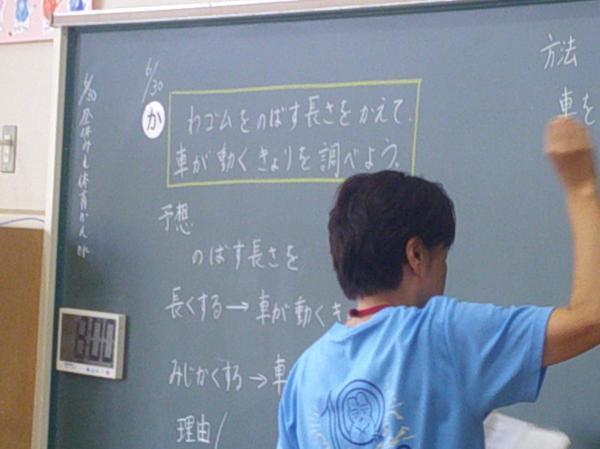 6/30 昼休みも体育かんOK
6/30
か
わゴムをのばす長さをかえて、
車が動くきょりを調べよう。
予想
のばす長さを
長くする→車が動くき
みじかくする→車
理由/
方法
車を
8:00